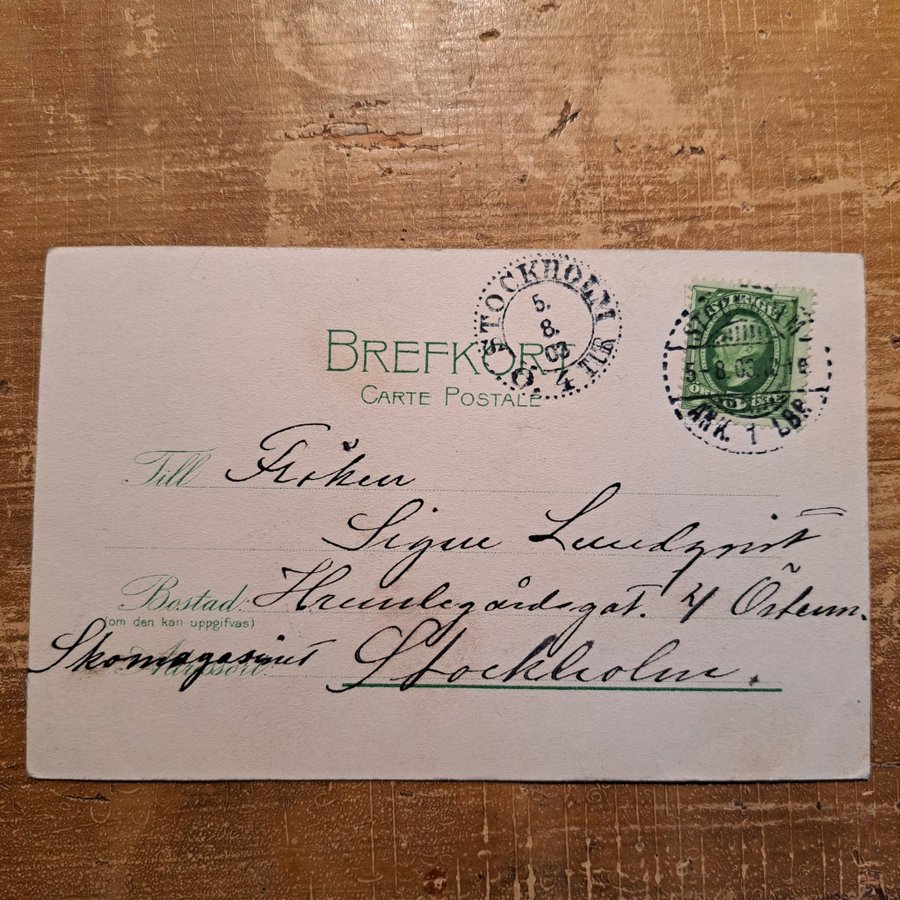 STOCKHOLM
5.
8.
03
Ö. 4 TUR
5 8 03
ANK. 1 LBR.
BREFKORT
CARTE POSTALE
Till Fröken
Signe Lundqvist
Bostad Humlegårdsgat. 4 Österm.
(om den kan uppgifvas)
Skomagasinet Stockholm.